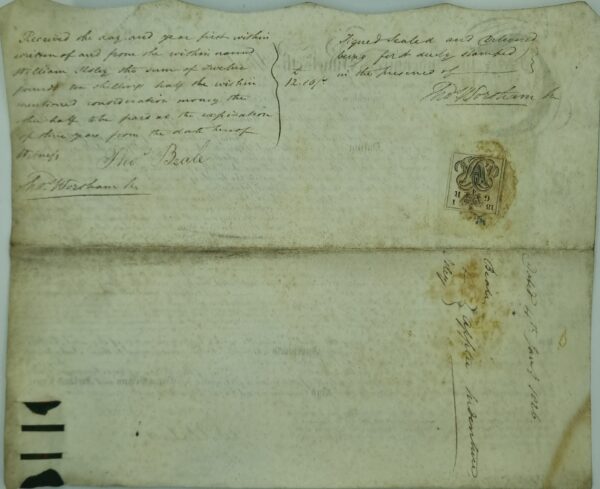 Received the day and year first within
written of and from the within named
William the sum of twelve
pounds ten shillings half the within
mentioned consideration money the
other half to be paid at the expiration
of three years from the date hereof
Witness
Thos Beale
Thos Worsham Jr
£
12.10/-
Signed Sealed and delivered
being first duly stamped
in the presence of
Thos Worsham Jr
Dated 4th Jany 1826
Beale
to
Appce Indenture